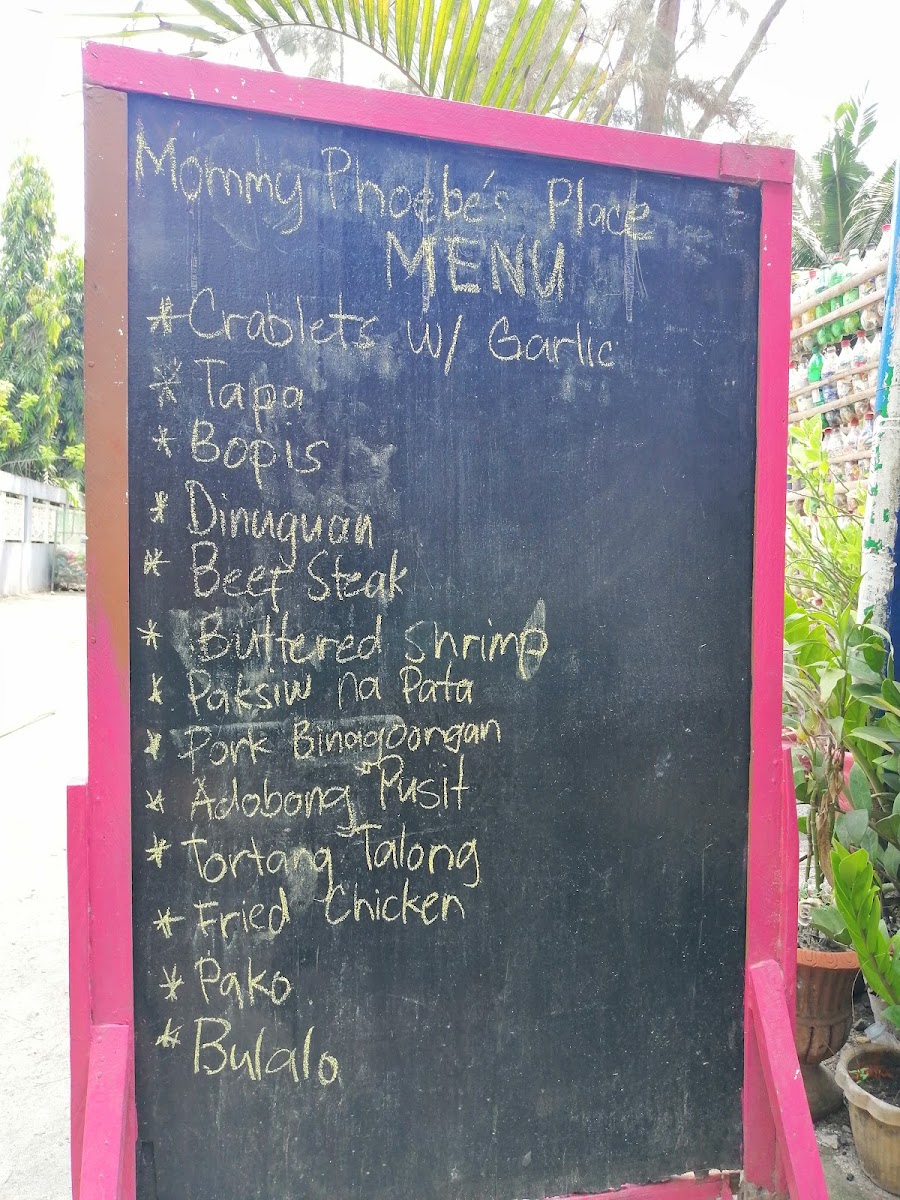 Mommy Phoebe's Place
MENU
* Crablets w/ Garlic
* Tapa
* Bopis
* Dinuguan
* Beef Steak
* Buttered Shrimp
* Paksiw na Pata
* Pork Binagoongan
* Adobong Pusit
* Tortang Talong
* Fried Chicken
* Pako
* Bulalo